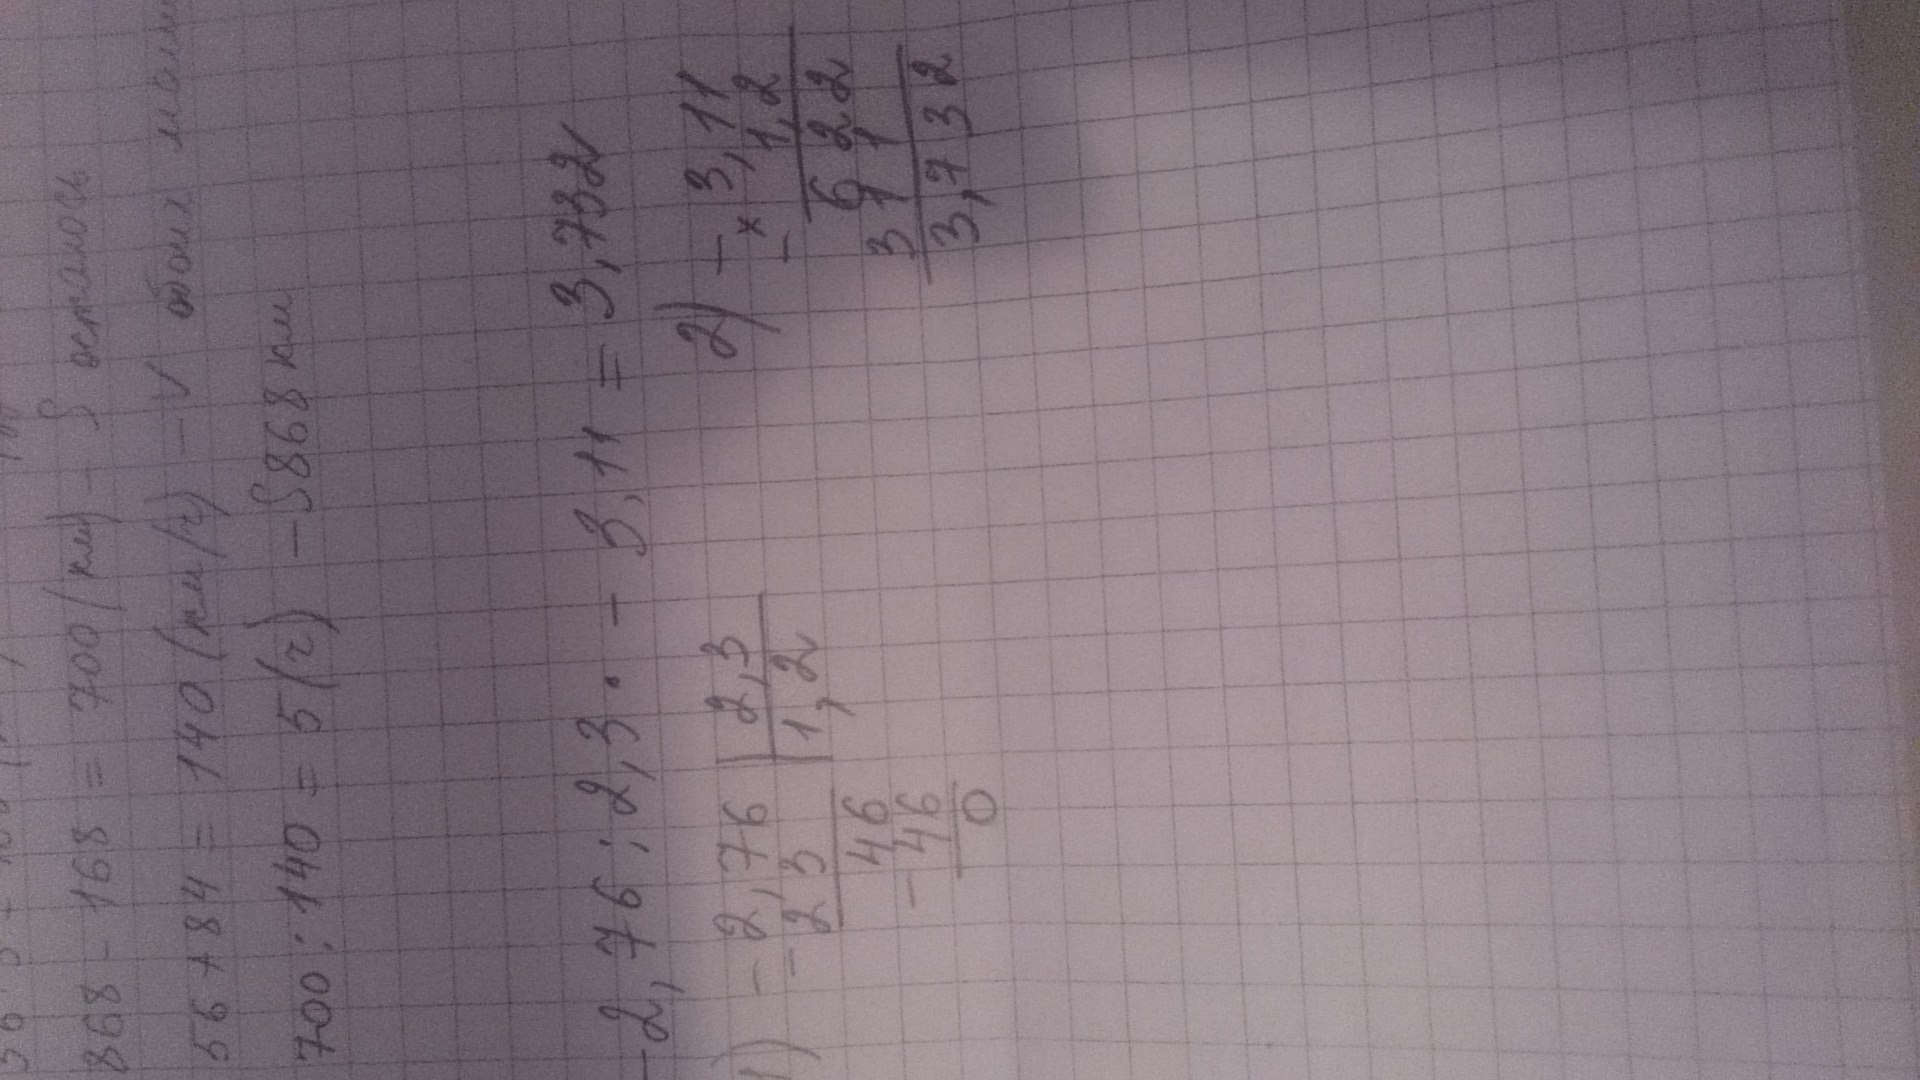 868 - 168 = 700 (км) - S осталось
56 + 84 = 140 (км/ч) - V обоих
700 : 140 = 5 (ч) - S 868 км
-2,76 : 2,3 · - 3,11 = 3,732
1) - 2,76 | 2,3
- 2 3 | 1,2
46
- 46
0
2) - 3,11
× - 1,2
6 2 2
3 1 1
3,7 3 2